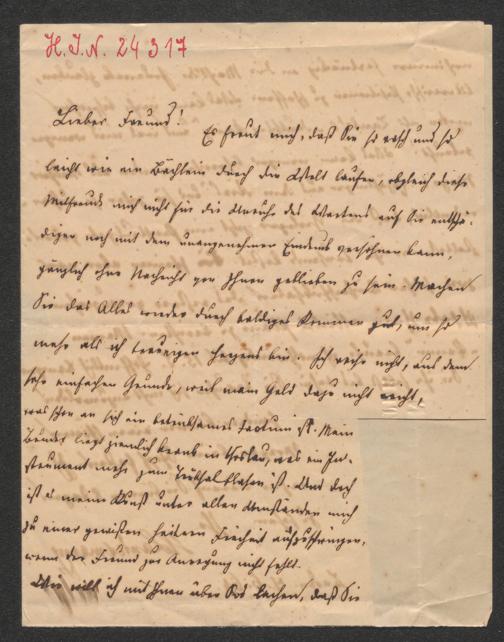 H.I.N. 24317
Lieber Freund!
Es freut mich, daß Sie so rasch und so
leicht wie ein Bächlein durch die Welt laufen, obgleich diese
Mitfreude mich nicht für die Unruhe des Wartens auf Sie entschä-
digen noch mit dem unangenehmen Eindruck versöhnen kann,
gänzlich ohne Nachricht von Ihnen geblieben zu sein. Machen
Sie das Alles wieder durch baldiges Kommen gut, um so
mehr als ich traurigen Herzens bin. Ich reise nicht, aus dem
sehr einfachen Grunde, weil mein Geld dazu nicht reicht,
was schon an sich ein betrübsames Factum ist. Mein
Bruder liegt ziemlich krank in, was ein In-
strument mehr zum Trübsalblasen ist. Und doch
ist es meine Kunst unter allen Umständen mich
zu einer gewissen heitern Freiheit aufzuschwingen,
wenn der Freund zur Anregung nicht fehlt.
Wie will ich mit Ihnen über lachen, daß Sie